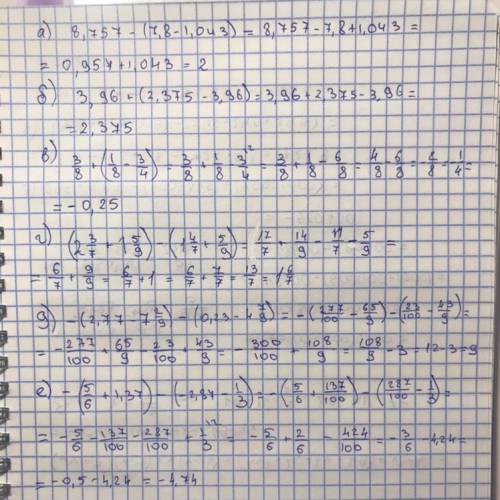 а) 8,757 - (7,8 - 1,043) = 8,757 - 7,8 + 1,043 =
= 0,957 + 1,043 = 2
б) 3,96 + (2,375 - 3,96) = 3,96 + 2,375 - 3,96 =
= 2,375
в) 3/8 + (1/8 - 3/4) = 3/8 + 1/8 - 3/4 = 3/8 + 1/8 - 6/8 = 4/8 - 6/8 = 2/8 = 1/4 =
= - 0,25
г) (2 3/7 + 1 5/9) - (1 4/7 + 5/9) = 17/7 + 14/9 - 11/7 - 5/9 =
= 6/7 + 9/9 = 6/7 + 1 = 6/7 + 7/7 = 13/7 = 1 6/7
д) -(2,77 - 7 2/9) - (0,23 - 4 7/9) = -(277/100 - 65/9) - (23/100 - 43/9) =
= - 277/100 + 65/9 - 23/100 + 43/9 = - 300/100 + 108/9 = 108/9 - 3 = 12 - 3 = 9
е) -(5/6 + 1,37) - (-2,87 - 1/3) = -(5/6 + 137/100) - (287/100 - 1/3) =
= - 5/6 - 137/100 - 287/100 + 1/3 = - 5/6 + 2/6 - 424/100 = - 3/6 - 4,24 =
= -0,5 - 4,24 = -4,74